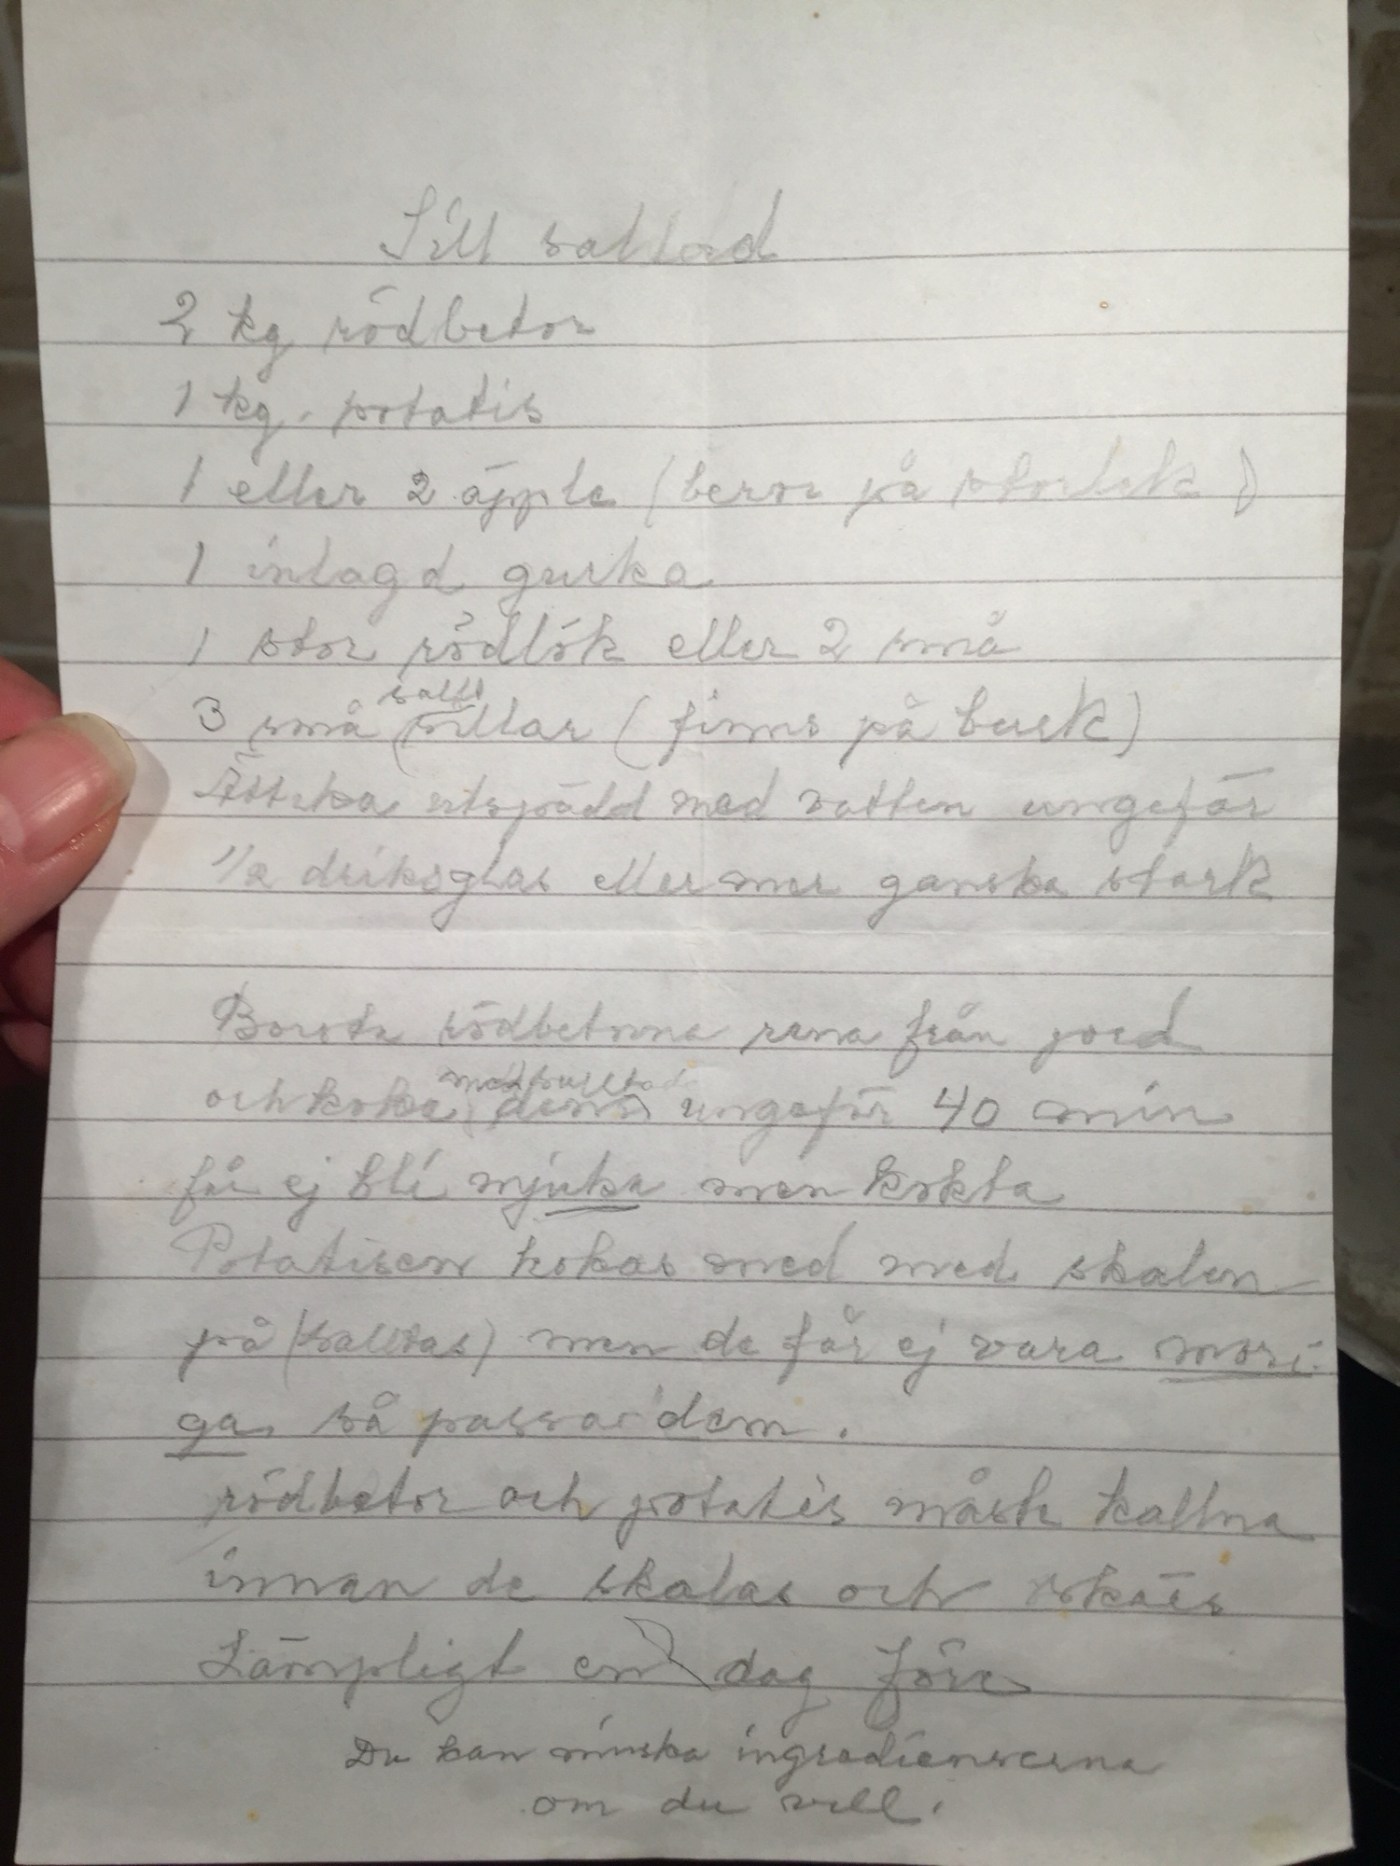 Sill sallad
2 kg rödbetor
1 kg. potatis
1 eller 2 äpple (beror på storlek)
1 inlagd gurka
1 stor rödlök eller 2 små
salt
3 små sillar (finns på burk)
Ättika utspädd med vatten ungefär
1/2 driksglas eller mer ganska stark
Borsta rödbetorna rena från jord
och koka dem ungefär 40 min
får ej bli mjuka men kokta
Potatisen kokas med med skalen
på (saltas) men de får ej vara mosi-
ga. så passar dem.
rödbetor och potatis måste kallna
innan de skalas och skäres
Lämpligt en dag före
Du kan minska ingredienserna
om du vill.